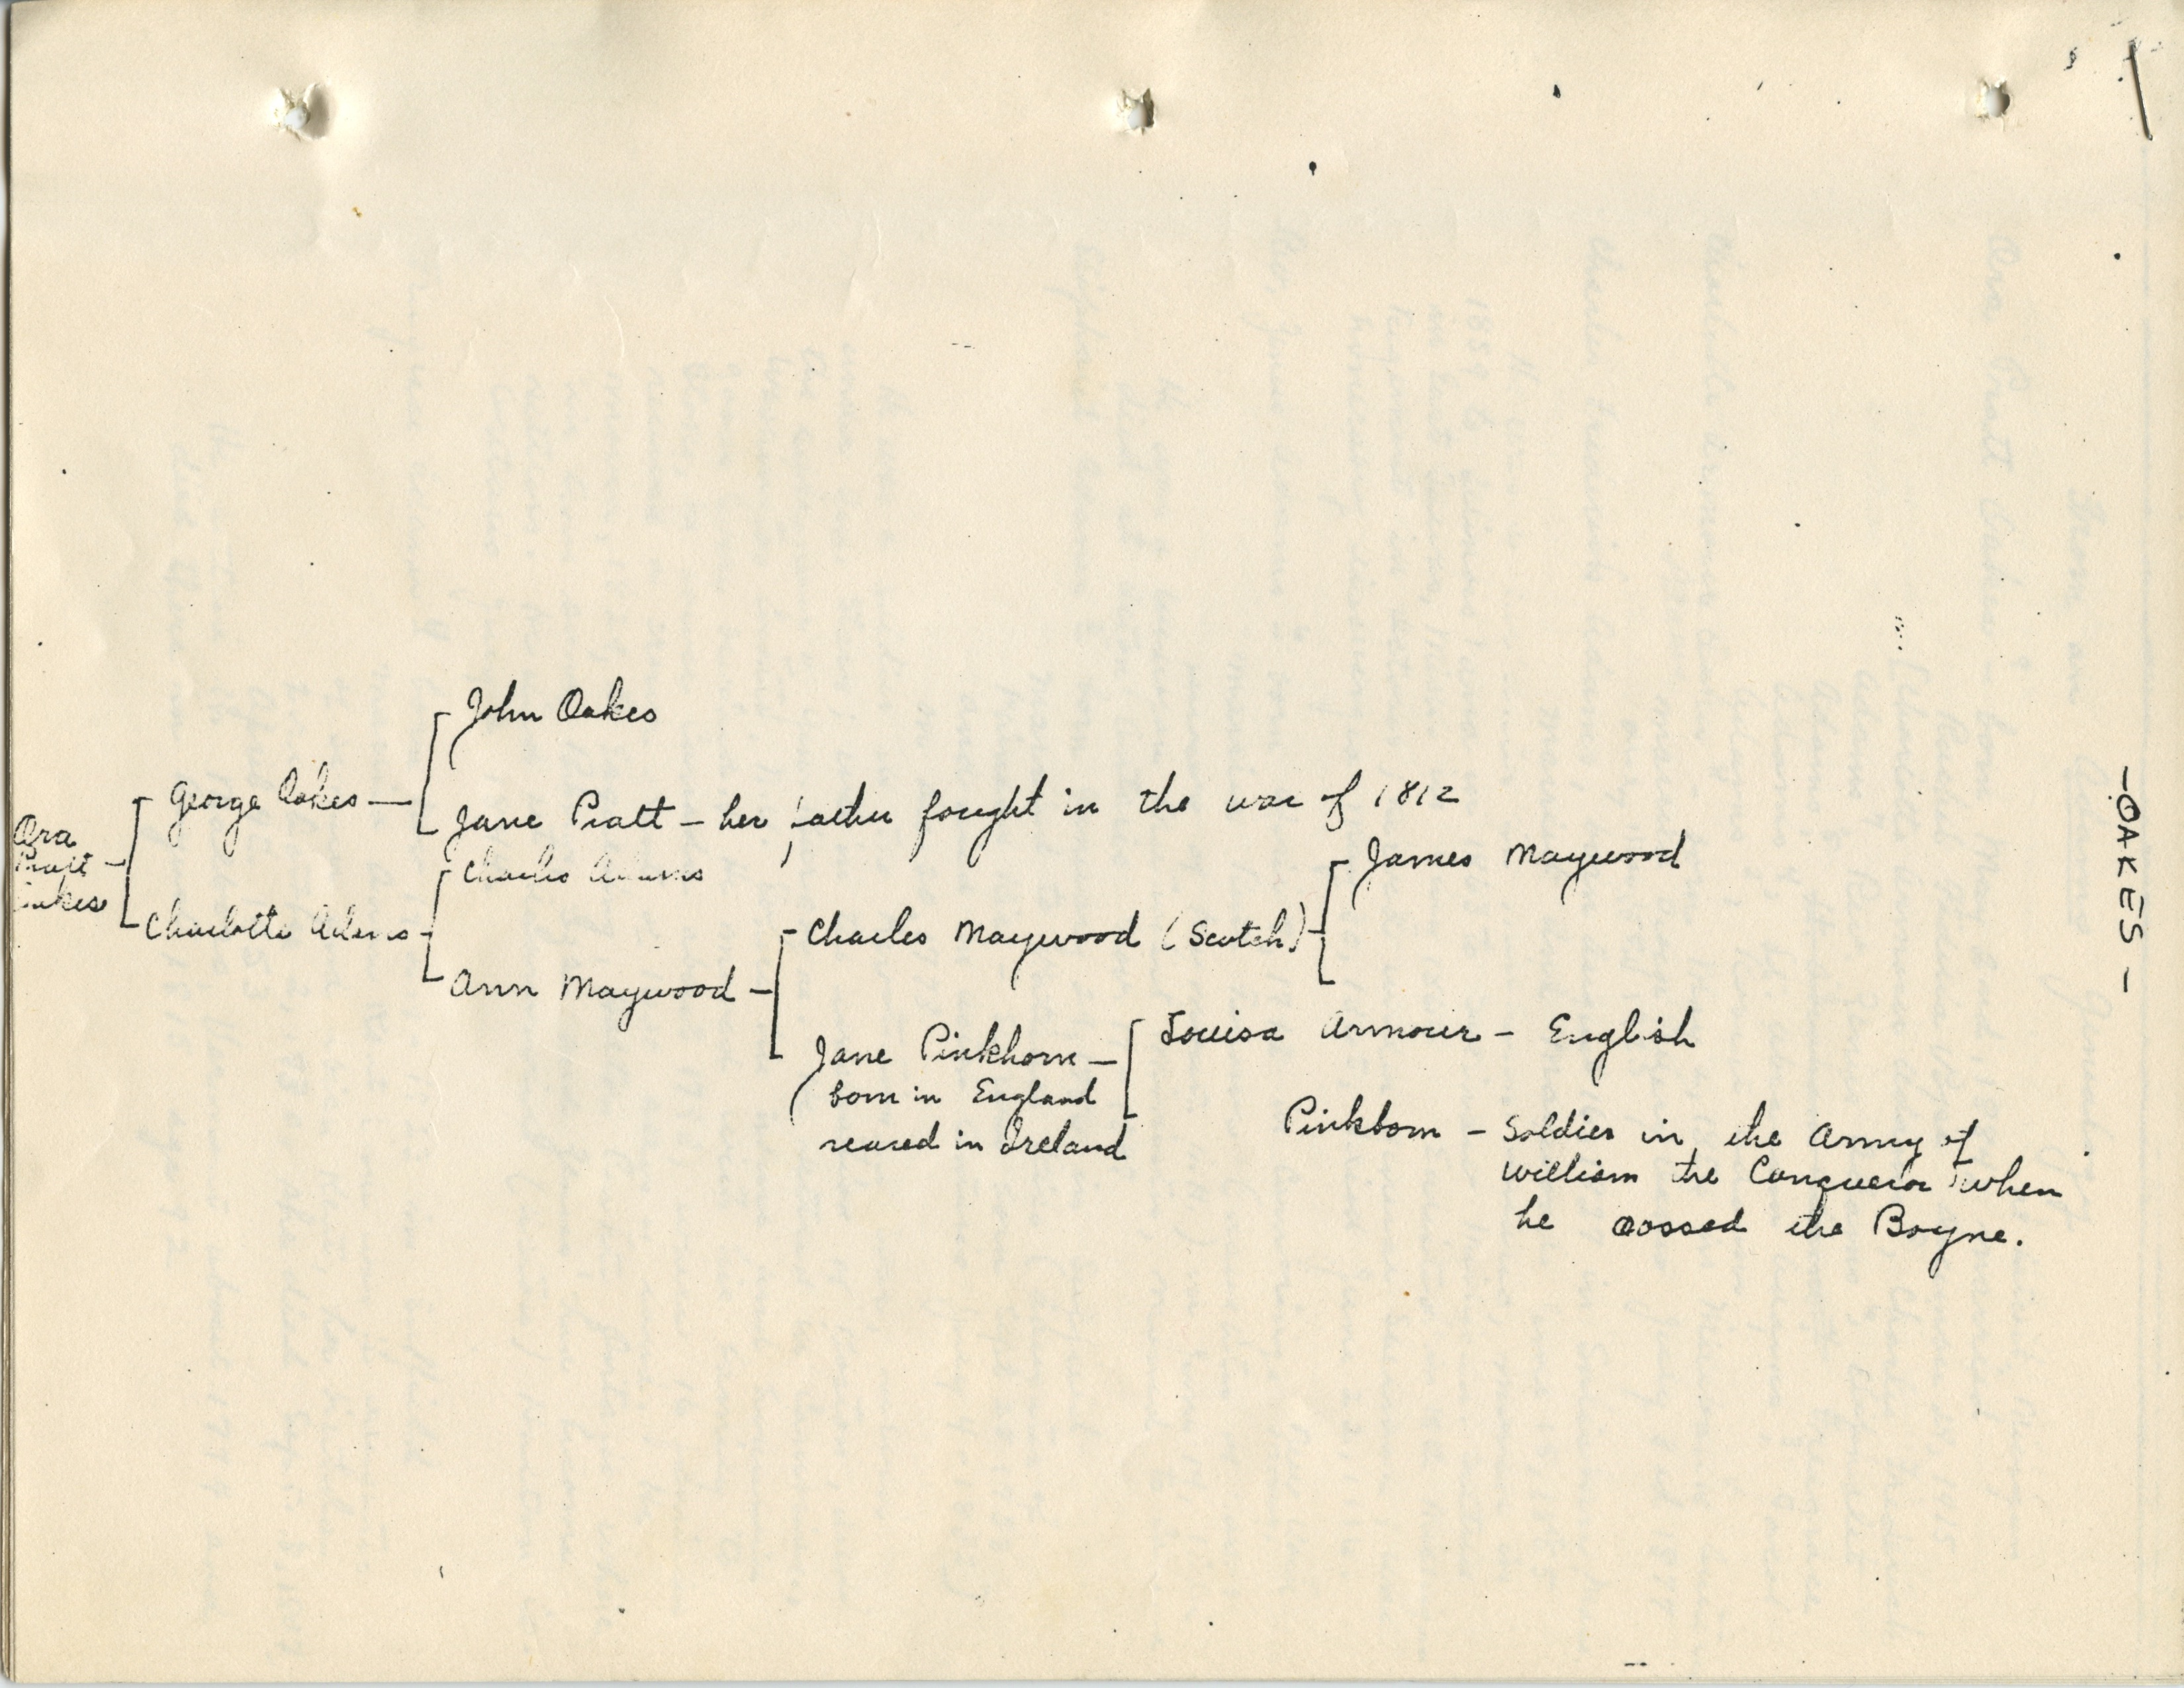 - OAKES -
John Oakes
George Oakes
Jane Pratt - her father fought in the war of 1812
Ora
Pratt
Oakes
Charles Adams
James Maywood
Charlotte Adams
Charles Maywood (Scotch)
Ann Maywood
Louisa Armour - English
Jane Pinkhorn
born in England
reared in Ireland
Pinkborn - Soldier in the Army of
William the Conqueror when
he crossed the Boyne.